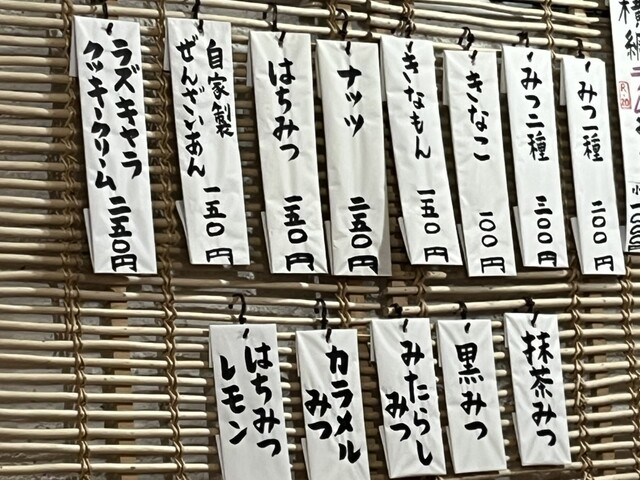 みつ一種 二〇〇円
みつ二種 三〇〇円
きなこ 一〇〇円
きなもん 一五〇円
ナッツ 二五〇円
はちみつ 二五〇円
自家製
ぜんざいあん 一五〇円
ラズキャラ
クッキークリーム 二五〇円
抹茶みつ
黒みつ
みたらし
みつ
カラメル
みつ
はちみつ
レモン